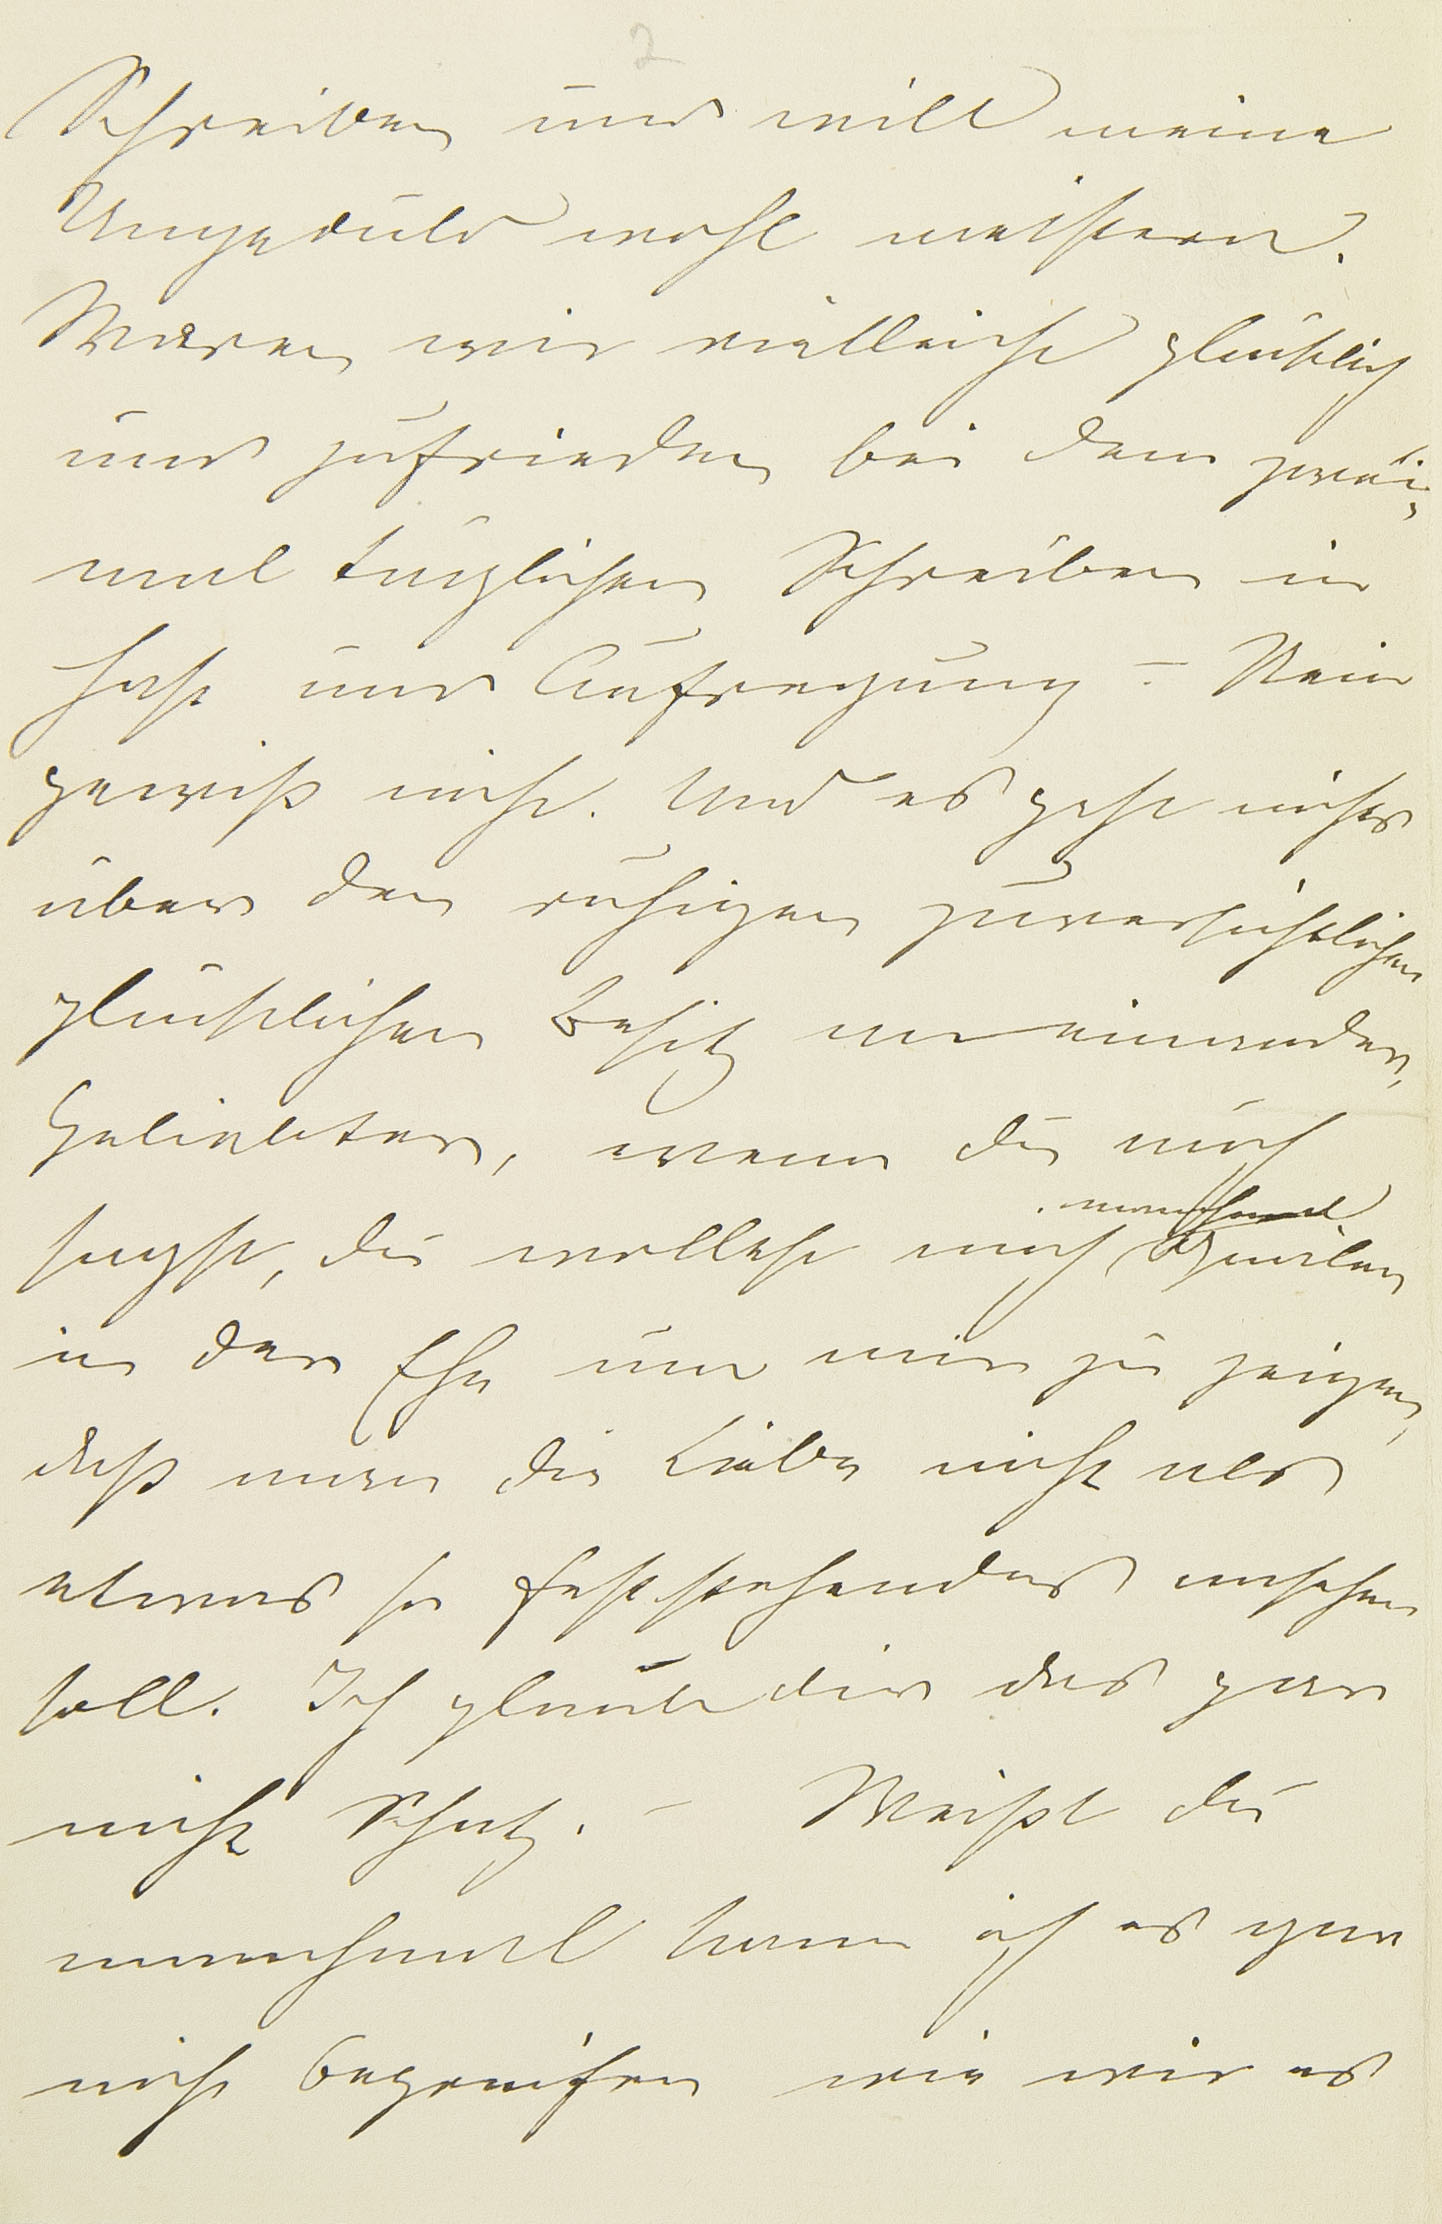 2
Schreiben und will meine
Ungeduld wohl meistern.
Waren wir vielleicht glücklich
und zufrieden bei dem zwei-
mal täglichen Schreiben in
Hast und Aufregung – Nein
gewiß nicht. Und es geht nichts
über den ruhigen zuversichtlichen
glücklichen Besitz an einander,
Geliebter, wenn du mich
manchmal
sagst, du wolltest mich quälen
in der Ehe um mir zu zeigen,
daß man die Liebe nicht als
etwas so feststehendes ansehen
soll. Ich glaube dir das gar
nicht Schatz. – Weißt du
manchmal kann ich es gar
nicht begreifen wie wir es